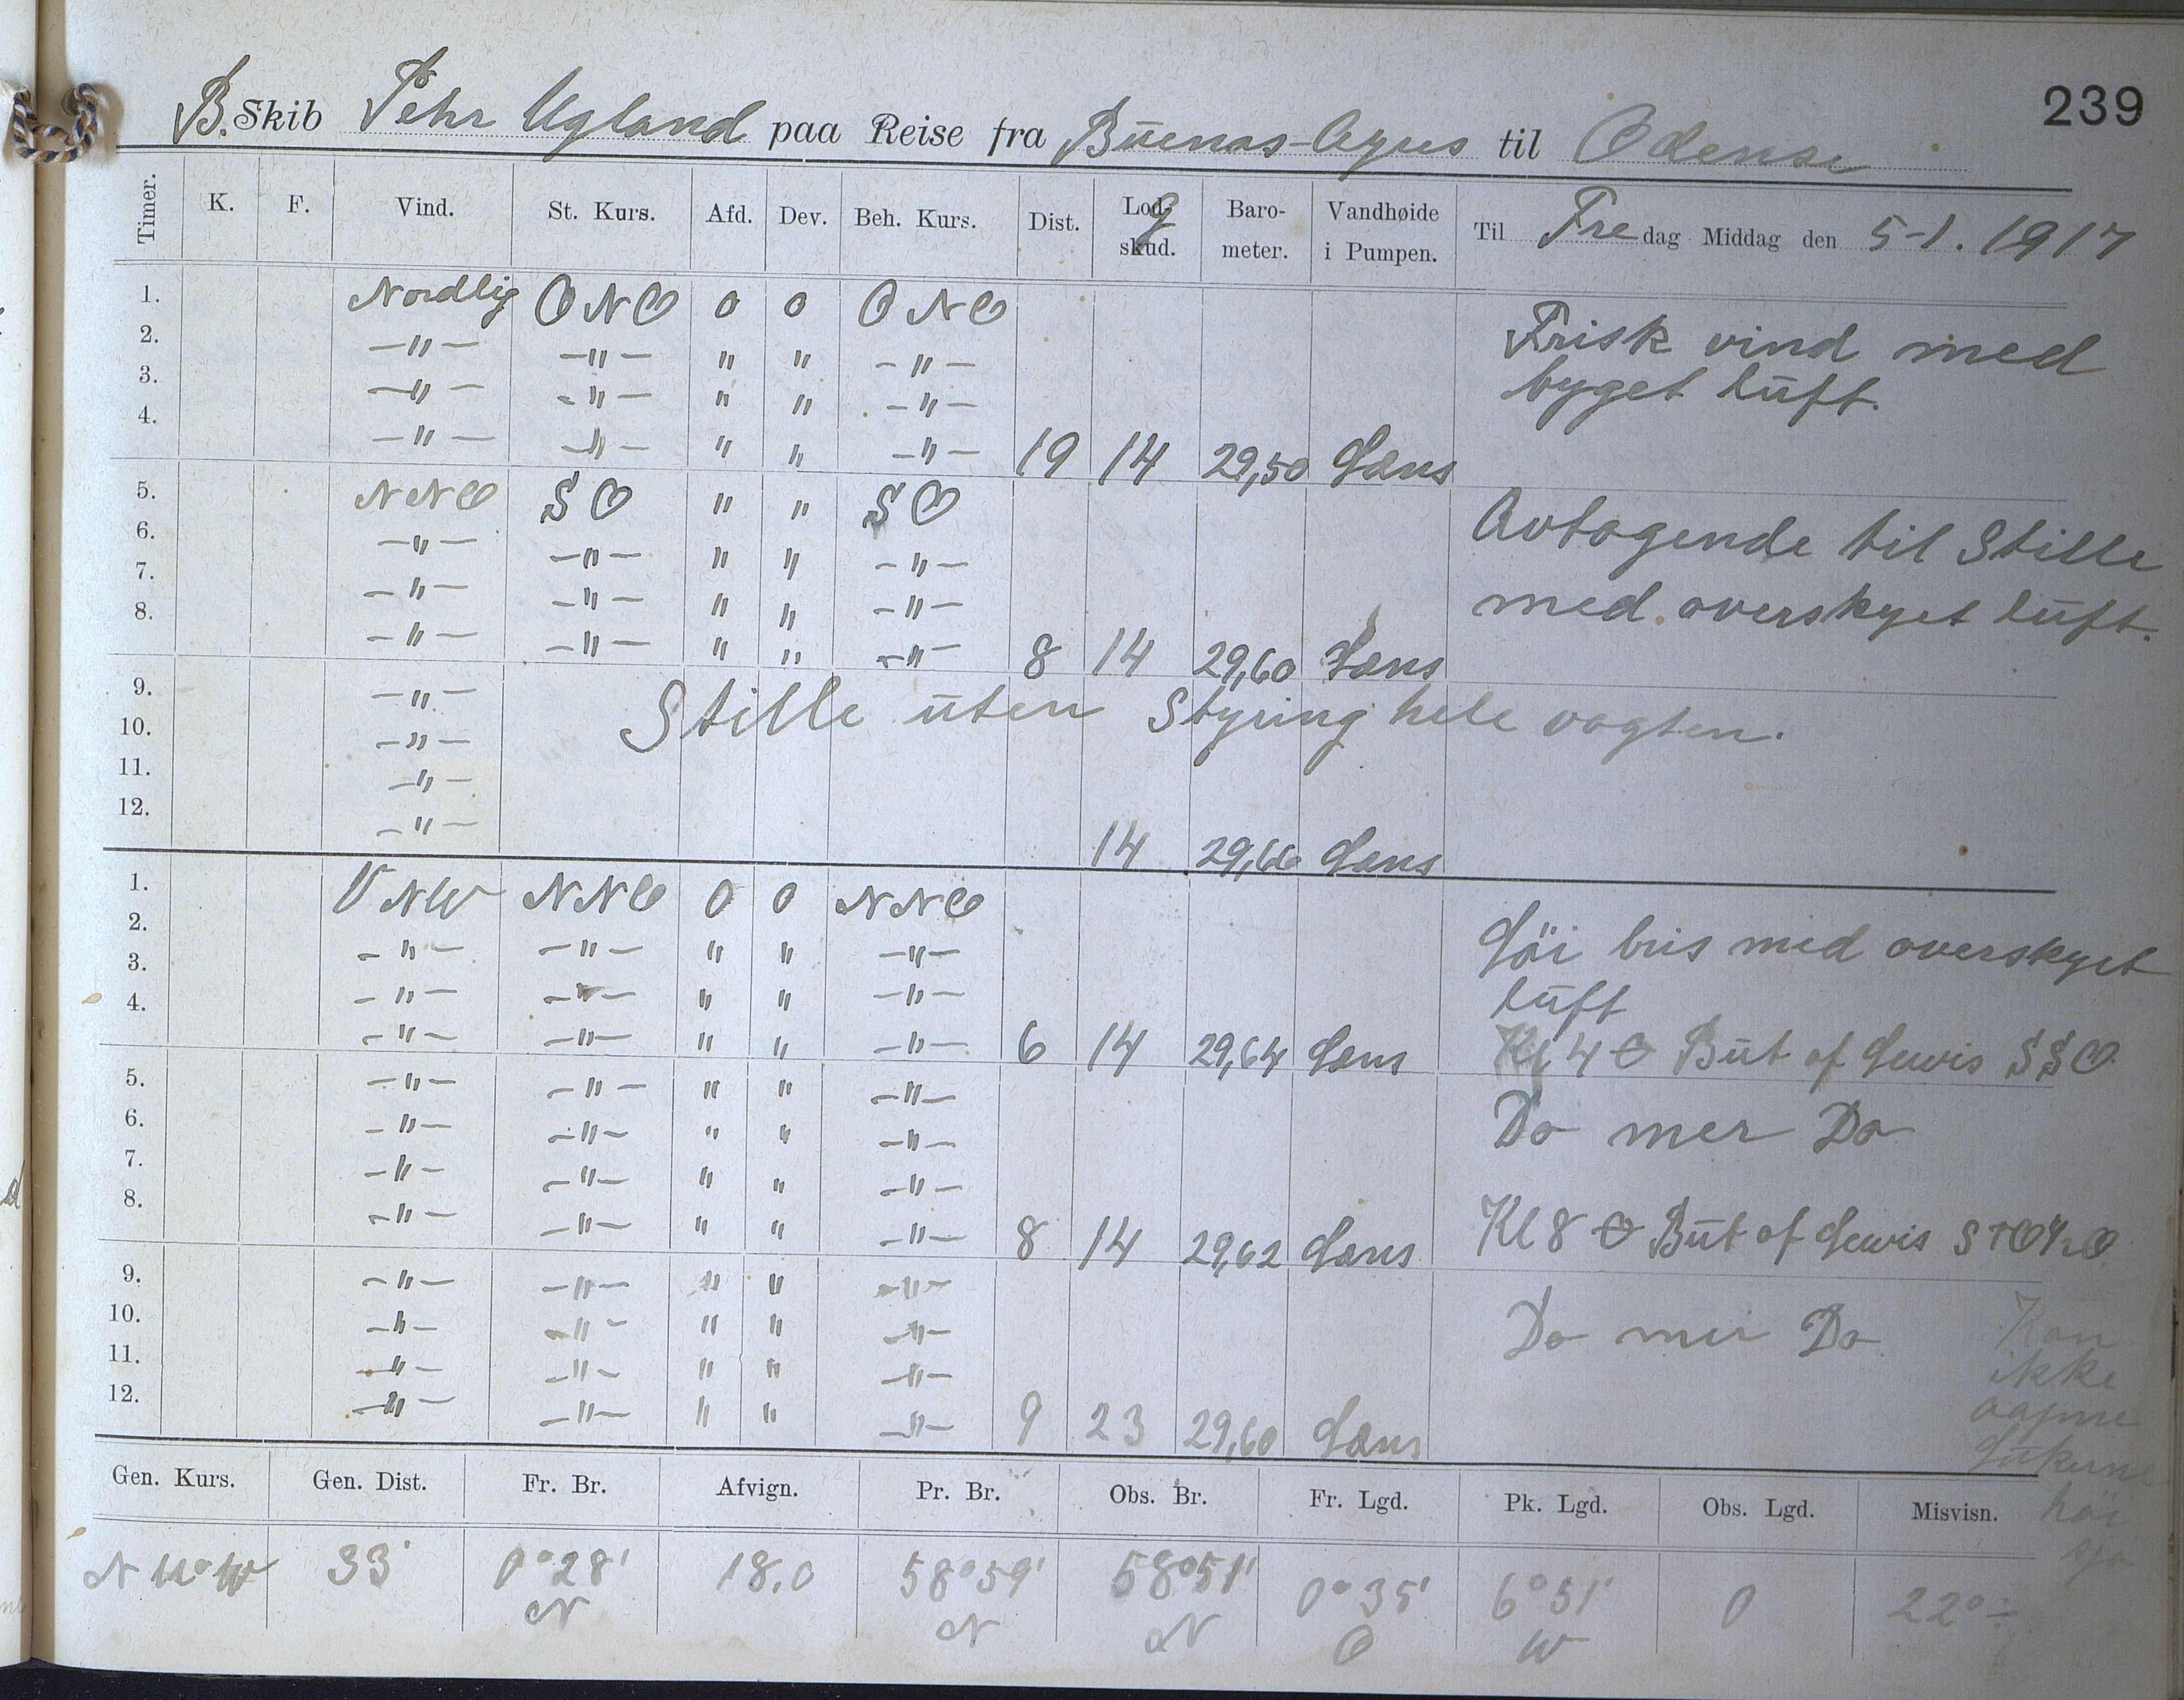 239
B. Skib Pehr Ugland paa Reise fra Buenas-Ayres til Odense
Timer. K. F. Vind. St. Kurs. Afd. Dev. Beh. Kurs. Dist. Lod-skud. g Baro-meter. Vandhøide i Pumpen. Til Fredag Middag den 5-1. 1917
1. Nordlig ONO 0 0 ONO
Frisk vind med
2. -"- -"- " " -"-
byget luft.
3. -"- -"- " " -"-
4. -"- -"- " " -"- 19 14 29,50 Læns
5. NNO SO " " SO
Avtagende til Stille
6. -"- -"- " " -"-
med overskyet luft.
7. -"- -"- " " -"-
8. -"- -"- " " -"- 8 14 29,60 Læns
9. -"- Stille uten Styring hele vagten.
10. -"-
11. -"-
12. -"- 14 29,66 Læns
1. VNW NNO 0 0 NNO
Löi bris med overskyet
2. -"- -"- " " -"-
luft
3. -"- -"- " " -"-
4. -"- -"- " " -"- 6 14 29,64 Læns Kl 4 But of Lewis SSO
5. -"- -"- " " -"-
Do mer Do
6. -"- -"- " " -"-
7. -"- -"- " " -"-
8. -"- -"- " " -"- 8 14 29,62 Læns Kl 8 But of Lewis
9. -"- -"- " " -"-
Do mer Do
10. -"- -"- " " -"-
11. -"- -"- " " -"-
12. -"- -"- " " -"- 9 23 29,60 Læns
Kan
ikke
aapne
Lukerne
höi
sjö
Gen. Kurs. Gen. Dist. Fr. Br. Afvign. Pr. Br. Obs. Br. Fr. Lgd. Pk. Lgd. Obs. Lgd. Misvisn.
33' 0°28' N 18.0 58°59' N 58°51' N 0°35' O 6°51' W 0 22°÷